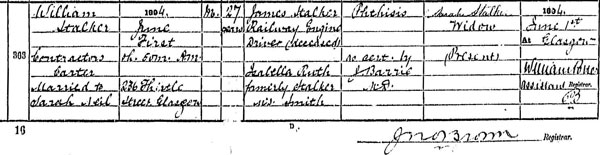 William 1904. M. 27 James Stalker Phthisis Sarah Stalker 1904.
Stalker June years Railway Engine Widow June 1st
First Driver (deceased) At Glasgow
303 Contractors 5h. 50m. A.M. as cert. by (Present)
Carter Isabella Ruth J Barrie William
Married to 236 Thistle formerly Stalker M.B. Assistant Registrar.
Sarah Neil Street Glasgow M.S. Smith
16 D. Jno Brown Registrar.